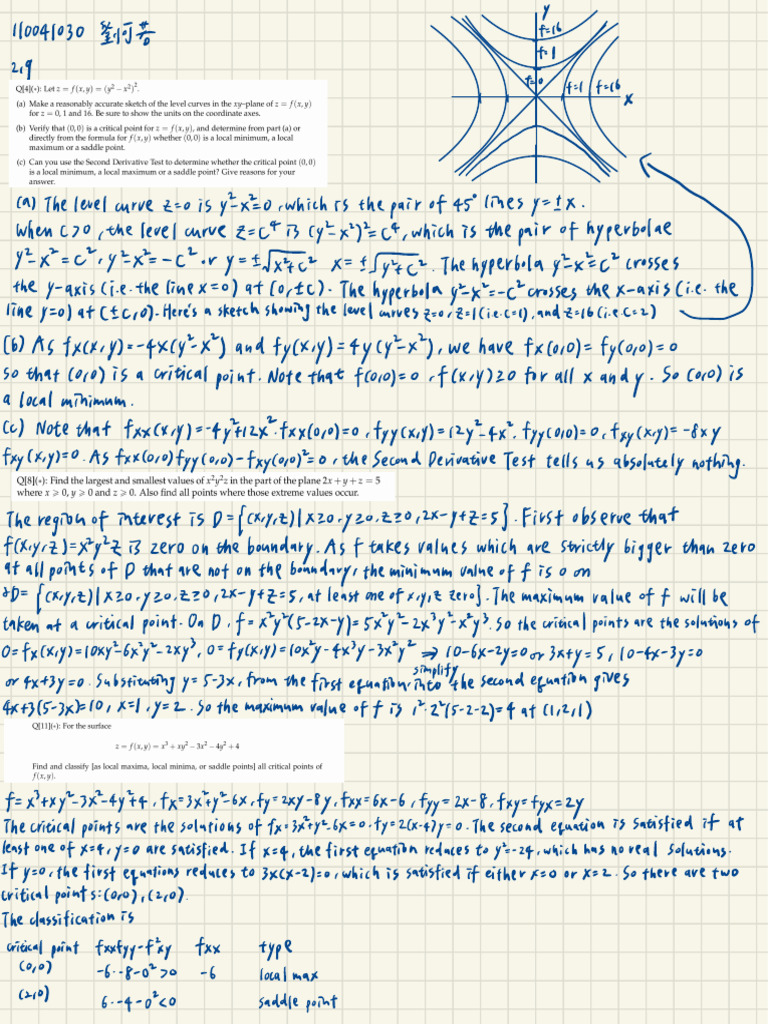 110041030 劉可善
2.9
y
f=16
f=1
f=0
f=1 f=16
x
Q[4](*): Let z = f(x,y) = (y² − x²)².
(a) Make a reasonably accurate sketch of the level curves in the xy-plane of z = f(x,y)
for z = 0, 1 and 16. Be sure to show the units on the coordinate axes.
(b) Verify that (0,0) is a critical point for z = f(x,y), and determine from part (a) or
directly from the formula for f(x,y) whether (0,0) is a local minimum, a local
maximum or a saddle point.
(c) Can you use the Second Derivative Test to determine whether the critical point (0,0)
is a local minimum, a local maximum or a saddle point? Give reasons for your
answer.
(a) The level curve z=0 is y²-x²=0, which is the pair of 45° lines y=±x.
When C>0, the level curve z=C⁴ is (y²-x²)²=C⁴, which is the pair of hyperbolae
y²-x²=C², y²-x²=-C² or y=±√x²+C² x=±√y²+C². The hyperbola y²-x²=C² crosses
the y-axis (i.e. the line x=0) at (0,±C). The hyperbola y²-x²=-C² crosses the x-axis (i.e. the
line y=0) at (±C,0). Here's a sketch showing the level curves z=0, z=1 (i.e. C=1), and z=16 (i.e. C=2)
(b) As fx(x,y)=-4x(y²-x²) and fy(x,y)=4y(y²-x²), we have fx(0,0)=fy(0,0)=0
so that (0,0) is a critical point. Note that f(0,0)=0, f(x,y)≥0 for all x and y. So (0,0) is
a local minimum.
(c) Note that fxx(x,y)=-4y²+12x². fxx(0,0)=0, fyy(x,y)=12y²-4x². fyy(0,0)=0, fxy(x,y)=-8xy
fxy(x,y)=0. As fxx(0,0)fyy(0,0)-fxy(0,0)²=0, the Second Derivative Test tells us absolutely nothing.
Q[8](*): Find the largest and smallest values of x²y²z in the part of the plane 2x + y + z = 5
where x ⩾ 0, y ⩾ 0 and z ⩾ 0. Also find all points where those extreme values occur.
The region of interest is D={(x,y,z)|x≥0,y≥0,z≥0,2x-y+z=5}. First observe that
f(x,y,z)=x²y²z is zero on the boundary. As f takes values which are strictly bigger than zero
at all points of D that are not on the boundary, the minimum value of f is 0 on
∂D={(x,y,z)|x≥0,y≥0,z≥0,2x-y+z=5, at least one of x,y,z zero}. The maximum value of f will be
taken at a critical point. On D, f=x²y²(5-2x-y)=5x²y²-2x³y²-x²y³. So the critical points are the solutions of
0=fx(x,y)=10xy²-6x²y²-2xy³, 0=fy(x,y)=10x²y-4x³y-3x²y² ⇒ 10-6x-2y=0 or 3x+y=5, 10-4x-3y=0
simplify
or 4x+3y=0. Substituting y=5-3x, from the first equation, into the second equation gives
4x+3(5-3x)=10, x=1, y=2. So the maximum value of f is 1²·2²(5-2-2)=4 at (1,2,1)
Q[11](*): For the surface
z = f(x,y) = x³ + xy² − 3x² − 4y² + 4
Find and classify [as local maxima, local minima, or saddle points] all critical points of
f(x,y).
f=x³+xy²-3x²-4y²+4, fx=3x²+y²-6x, fy=2xy-8y, fxx=6x-6, fyy=2x-8, fxy=fyx=2y
The critical points are the solutions of fx=3x²+y²-6x=0. fy=2(x-4)y=0. The second equation is satisfied if at
least one of x=4, y=0 are satisfied. If x=4, the first equation reduces to y²=-24, which has no real solutions.
If y=0, the first equations reduces to 3x(x-2)=0, which is satisfied if either x=0 or x=2. So there are two
critical points: (0,0), (2,0).
The classification is
critical point fxxfyy-f²xy fxx type
(0,0) -6·-8-0²>0 -6 local max
(2,0) 6·-4-0²<0 saddle point